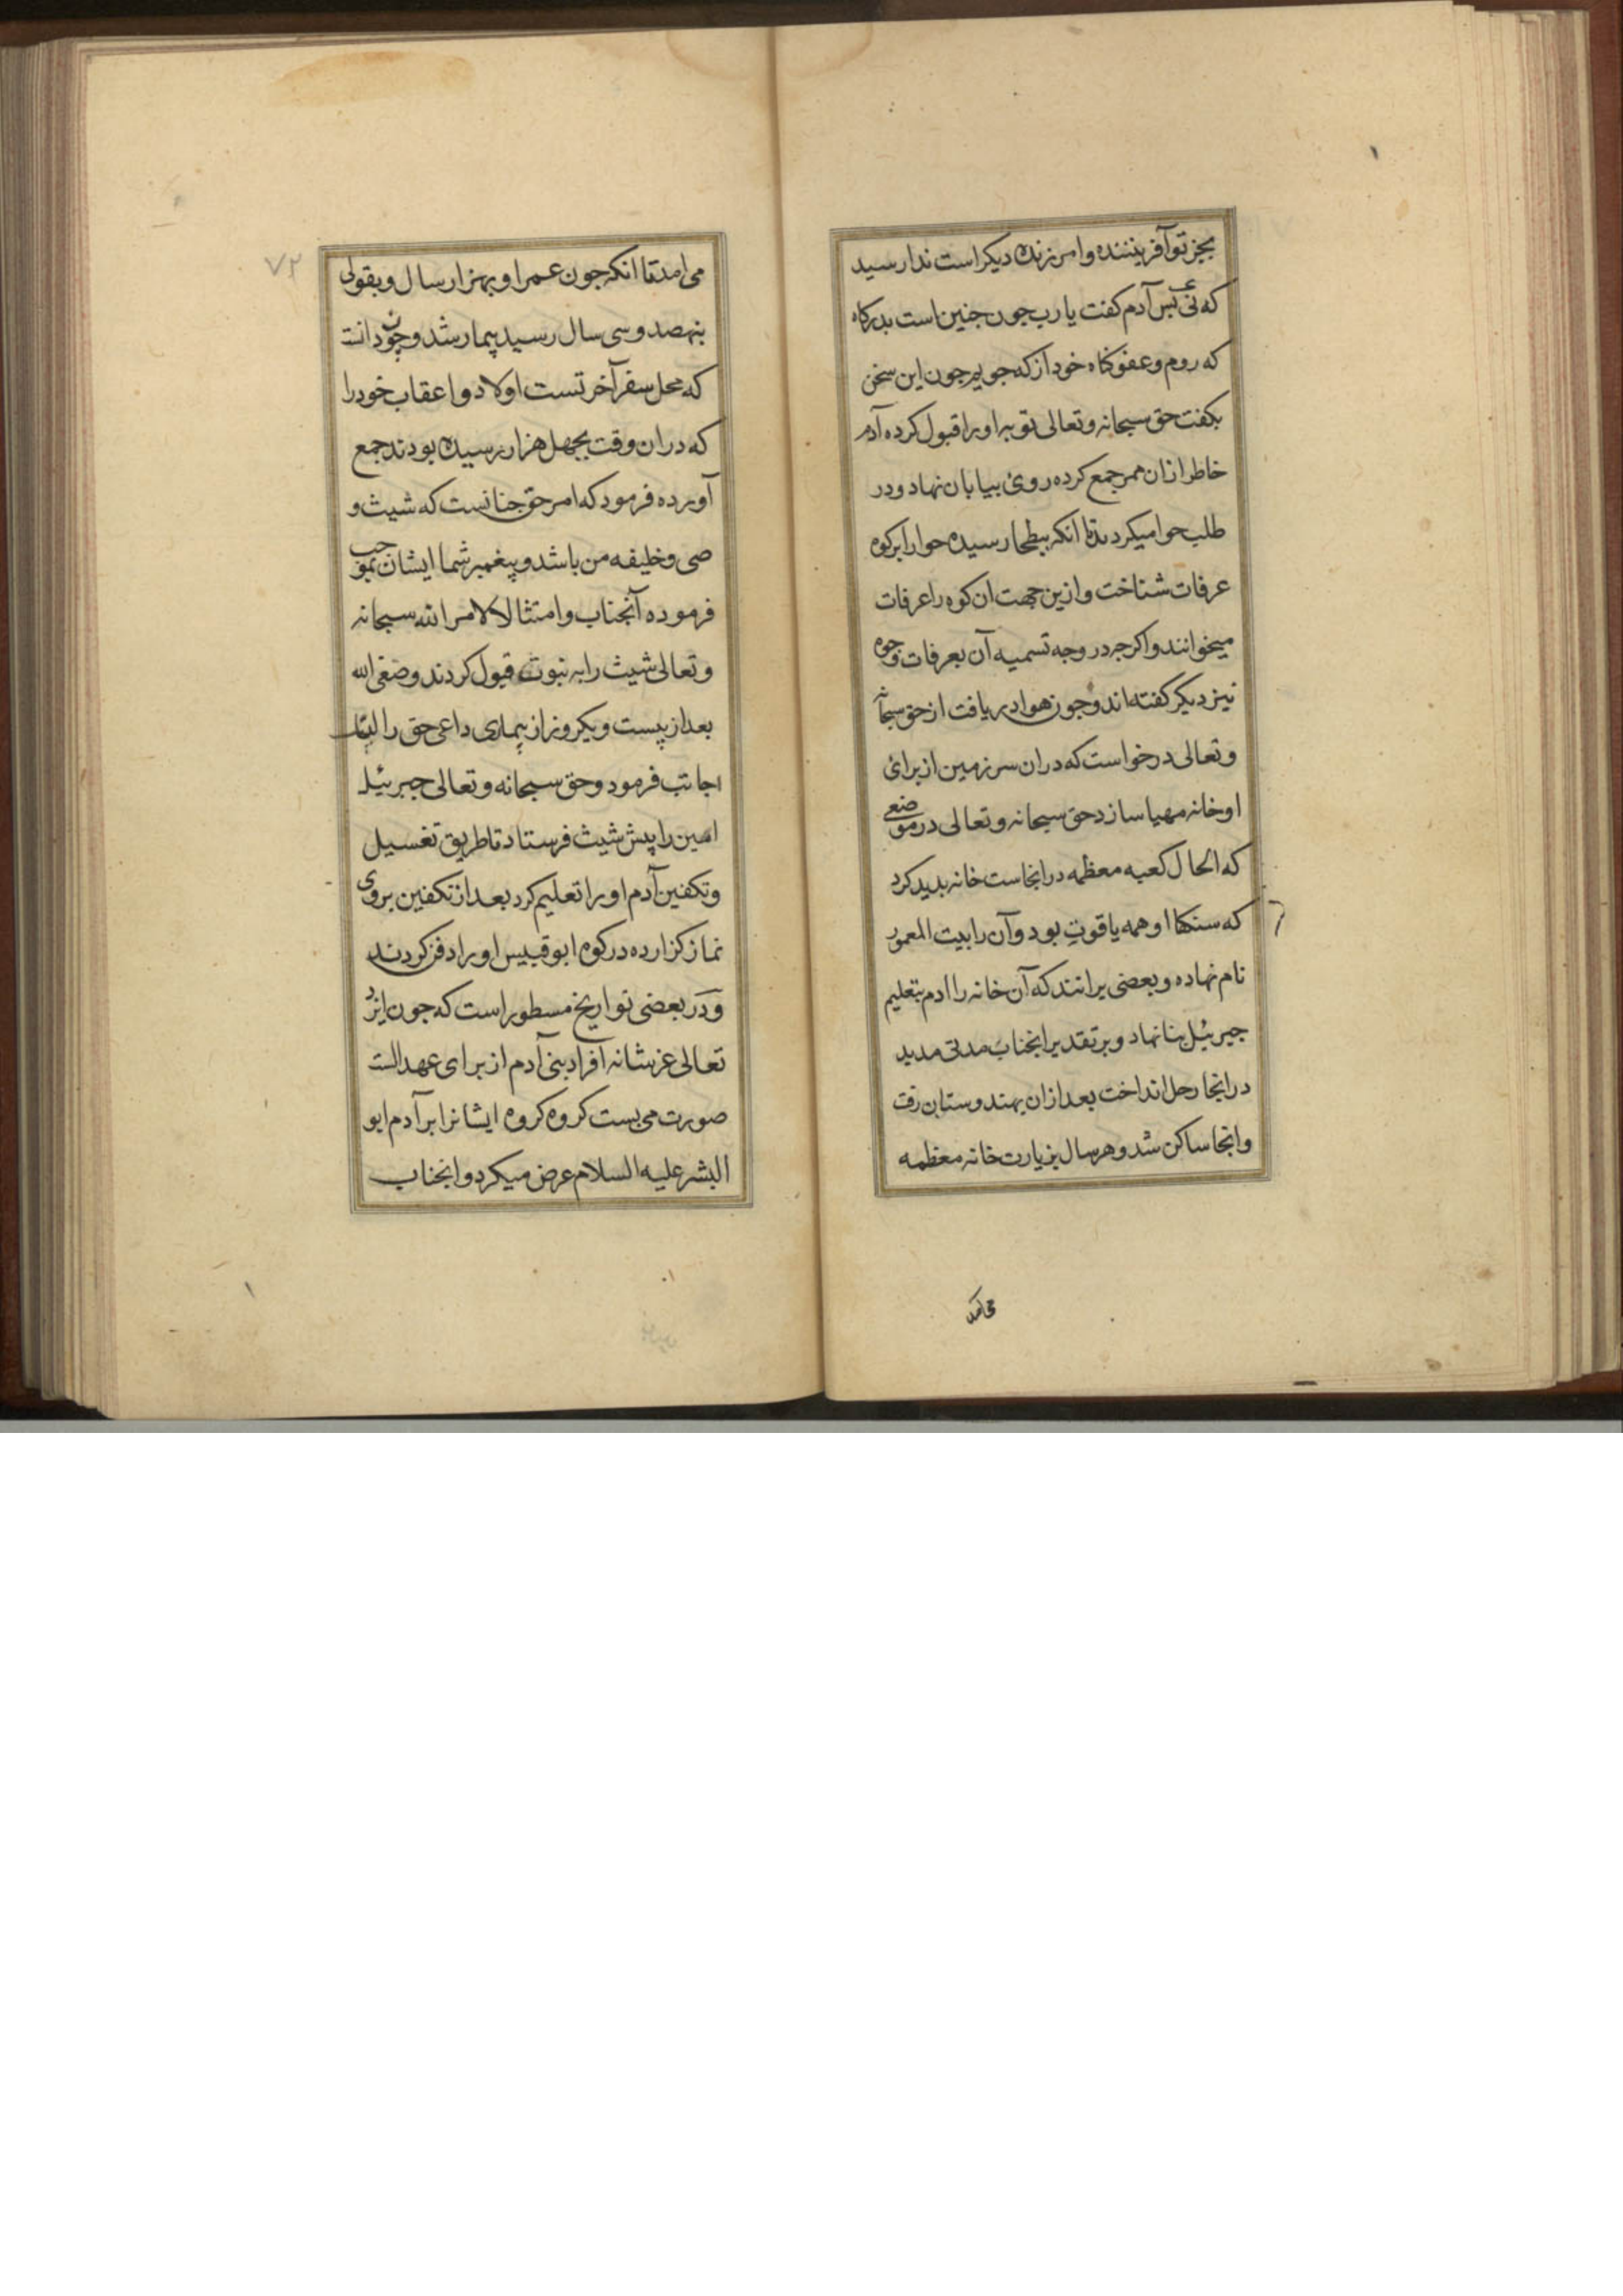 بجز تو آفریننده و امرزنده دیکر است ندا رسید
که نئ بس آدم کفت یا رب جون جنین است بدرکاه
که روم و عفو کناه خود از که جویم جون این سخن
بکفت حق سبحانه و تعالی توبه او را قبول کرده آدم
خاطر ازان ممر جمع کرده روئ ببیابان نهاد و در
طلب حوا میکردید تا انکه ببطحا رسیده حوا را بر کوه
عرفات شناخت و ازین جهت ان کوه را عرفات
میخوانند و اکرجه در وجه تسمیه آن بعرفات وجوه
نیز دیکر کفته اند و جون هوا دریافت از حق سبحانه
و تعالی درخواست که دران سرزمین از برائ
او خانه مهیا سازد حق سبحانه و تعالی در موضعی
که الحال کعبه معظمه در انجاست خانه بدید کرد
که سنکها او همه یاقوت بود و آن را بیت المعمور
نام نهاده و بعضی برانند که آن خانه را ادم بتعلیم
جبرئیل بنا نهاد و بر تقدیر انجناب مدتی مدید
در انجا رحل انداخت بعد ازان بهندوستان رفت
و انجا ساکن شد و هر سال بزیارت خانه معظمه
می امد
۷۲
می امد تا انکه جون عمر او بهزار سال و بقولی
بنهصد و سی سال رسید بیمار شد و چون دانست
که محل سفر آخرتست اولاد و اعقاب خود را
که دران وقت بجهل هزار رسیده بودند جمع
آورده فرمود که امر حق جنانست که شیث و
صی و خلیفه من باشد و پیغمبر شما ایشان بموجب
فرموده آنجناب و امتثالا لامر الله سبحانه
و تعالی شیث را به نبوت قبول کردند و صفی الله
بعد از بیست و یکروز از بیماری داعی حق را لبیک
اجابت فرمود و حق سبحانه و تعالی جبرئیل
امین را پیش شیث فرستاد تا طریق تغسیل
و تکفین آدم او را تعلیم کرد بعد از تکفین بروی
نماز کزارده در کوه ابو قبیس او را دفن کردند
و در بعضی تواریخ مسطور است که جون ایزد
تعالی عز شانه افراد بنی آدم از برای عهد الست
صورت می بست کروه کروه ایشانرا بر آدم ابو
البشر علیه السلام عرض میکرد و انجناب